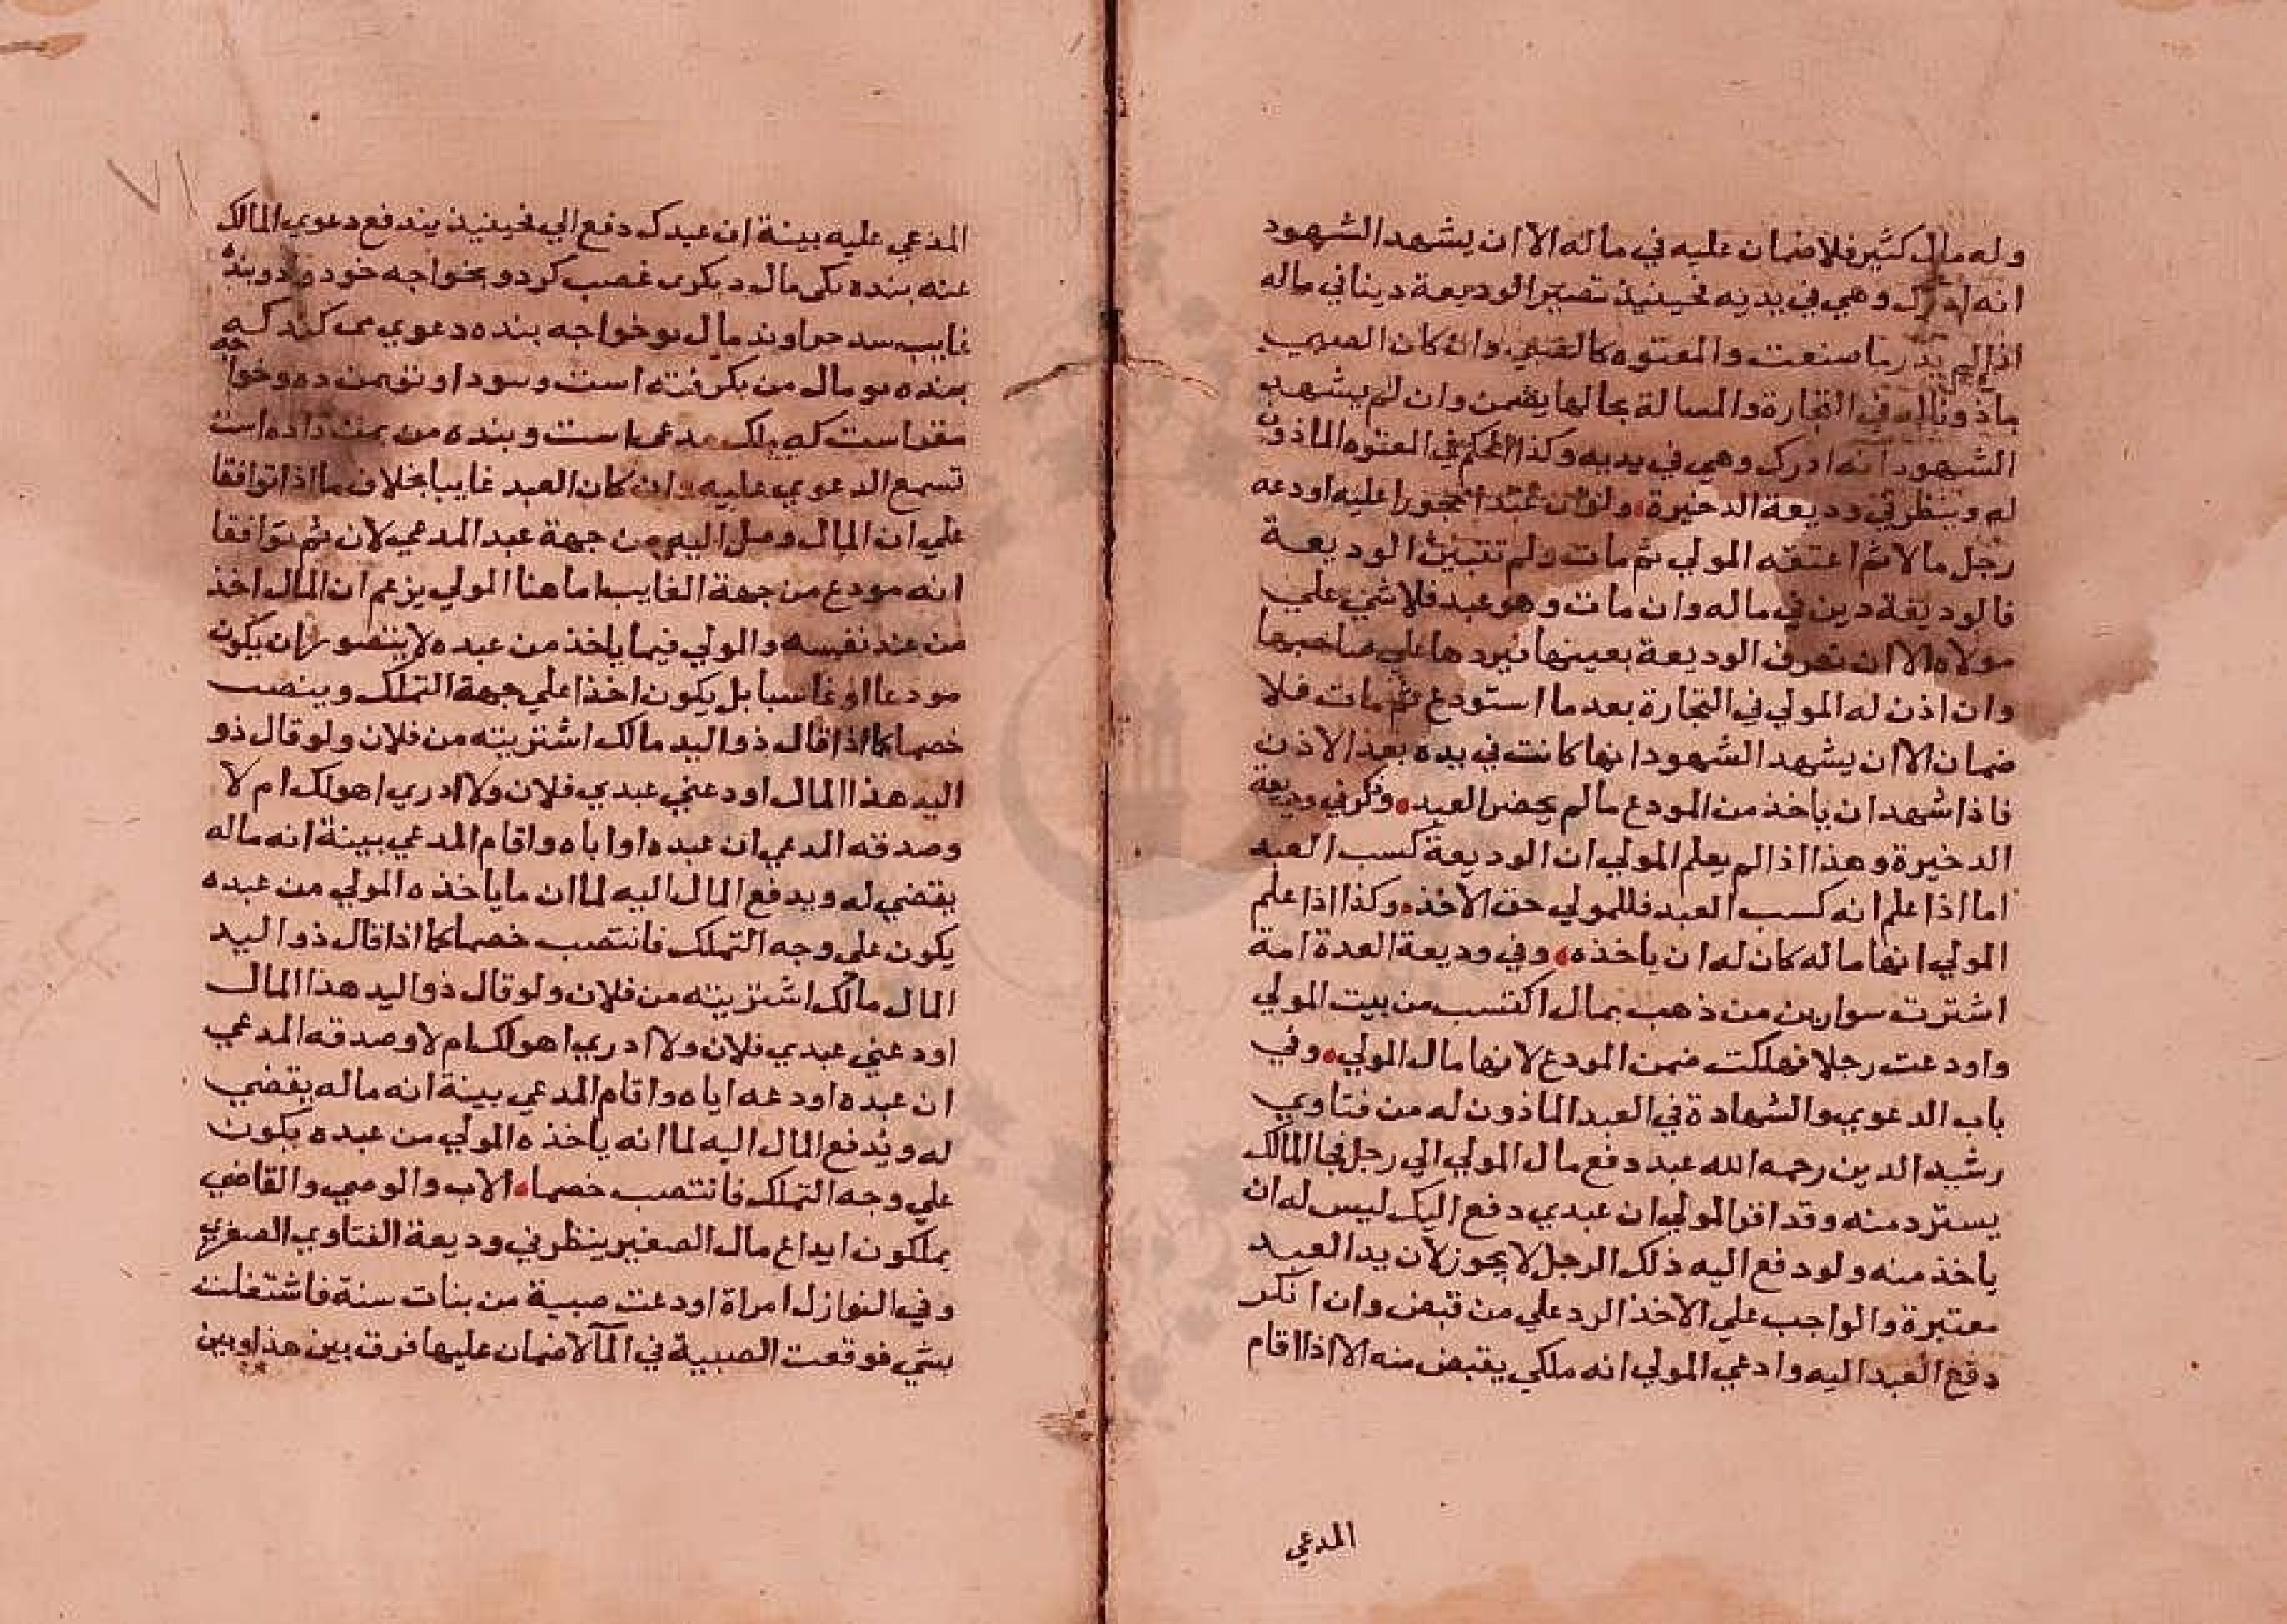 وله مال كثير فلا ضمان عليه في ماله الا ان يشهد الشهود
انه ادرك وهي في يديه فحينيذ تصير الوديعة دينا في ماله
اذا لم يدر ما صنعت والمعتوه كالصبي وان كان الصبي
ماذونا له في التجارة والمسالة بحالها يضمن وان لم يشهد
الشهود انه ادرك وهي في يديه وكذا الحكم في المعتوه الماذون
له وينظر في وديعة الدخيرة ولو ان عبدا محجورا عليه اودعه
رجل مالا ثم اعتقه المولي ثم مات ولم تتبين الوديعة
فالوديعة دين في ماله وان مات وهو عبد فلا شي علي
مولاه الا ان تعرف الوديعة بعينها فيردها علي صاحبها
وان اذن له المولي في التجارة بعد ما استودع ثم مات فلا
ضمان الا ان يشهد الشهود انها كانت في يده بعد الاذن
فاذا شهد ان ياخذ من المودع مالم يحضر العبد وذكر في وديعة
الدخيرة وهذا اذا لم يعلم المولي ان الوديعة كسب العبد
اما اذا علم انه كسب العبد فللمولي حق الاخذ وكذا اذا علم
المولي انها ماله كان له ان ياخذه وفي وديعة العدة امة
اشترت سوارين من ذهب بمال اكتسب من بيت المولي
واودعت رجلا فهلكت ضمن المودع لانها مال المولي وفي
باب الدعوي والشهادة في العبد الماذون له من فتاوي
رشيد الدين رحمه الله عبد دفع مال المولي الي رجل فجا المالك
يسترد منه وقد اقر المولي ان عبدي دفع اليك ليس له ان
ياخذ منه ولو دفع اليه ذلك الرجل لا يجوز لان يد العبد
معتبرة والواجب علي الاخذ الرد علي من قبض وان انكر
دفع العبد اليه وادعي المولي انه ملكي يقبض منه الا اذا اقام
المدعي
المدعي عليه بينة ان عبدك دفع الي فحينيذ يندفع دعوي المالك
عنه بنده يكي مال ديكري غصب كرد و بخواجه خود داد وبنده
غايب سد خداوند مال بو خواجه بنده دعوي مي كند كه
بنده بو مال من بكرفته است و بتو من ده وخواجه
مقر است كه ملك مدعي است و بنده من بمن داده است
تسمع الدعوي عليه وان كان العبد غايبا بخلاف ما اذا توافقا
علي ان المال وصل اليه من جهة عبد المدعي لان ثم توافقا
انه مودع من جهة الغايب اما هنا المولي يزعم ان المال اخذ
من عند نفسه والمولي فيما ياخذ من عبده لا يتصور ان يكون
مودعا او غاسبا بل يكون اخذا علي جهة التملك وينصب
خصما كما اذا قال ذو اليد مالك اشتريته من فلان ولو قال ذو
اليد هذا المال اودعني عبدي فلان ولا ادري اهو لك ام لا
وصدقه المدعي ان عبده اواباه واقام المدعي بينة انه ماله
يقضي له ويدفع المال اليه لما ان ما ياخذه المولي من عبده
يكون علي وجه التملك فانتصب خصما كما اذا قال ذو اليد
المال مالك اشتريته من فلان ولو قال ذو اليد هذا المال
اودعني عبدي فلان ولا ادري اهو لك ام لا وصدقه المدعي
ان عبده اودعه اياه واقام المدعي بينة انه ماله يقضي
له ويدفع المال اليه لما انه ياخذه المولي من عبده يكون
علي وجه التملك فانتصب خصما الاب والوصي والقاضي
يملكون ايداع مال الصغير ينظر في وديعة الفتاوي الصغري
وفي النوازل امراة اودعت صبية من بنات سنة فاشتغلت
بشي فوقعت الصبية في المآ لا ضمان عليها فرق بين هذا وبين